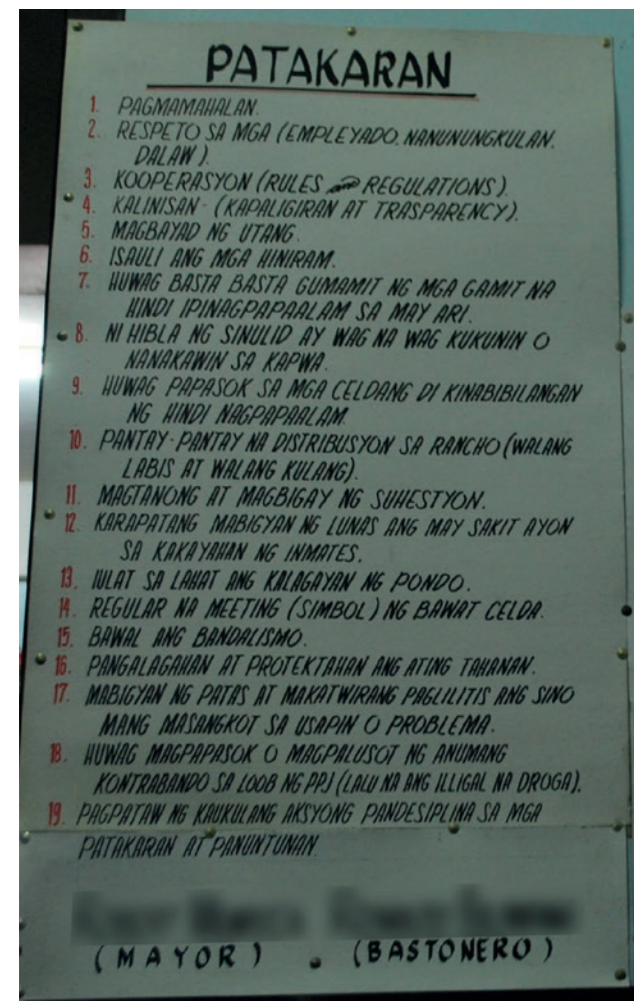 PATAKARAN
1. PAGMAMAHALAN.
2. RESPETO SA MGA (EMPLEYADO, NANUNUNGKULAN,
DALAW).
3. KOOPERASYON (RULES and REGULATIONS).
4. KALINISAN - (KAPALIGIRAN AT TRASPARENCY).
5. MAGBAYAD NG UTANG.
6. ISAULI ANG MGA HINIRAM.
7. HUWAG BASTA BASTA GUMAMIT NG MGA GAMIT NA
HINDI IPINAGPAPAALAM SA MAY ARI.
8. NI HIBLA NG SINULID AY WAG NA WAG KUKUNIN O
NANAKAWIN SA KAPWA.
9. HUWAG PAPASOK SA MGA CELDANG DI KINABIBILANGAN
NG HINDI NAGPAPAALAM.
10. PANTAY-PANTAY NA DISTRIBUSYON SA RANCHO (WALANG
LABIS AT WALANG KULANG).
11. MAGTANONG AT MAGBIGAY NG SUHESTYON.
12. KARAPATANG MABIGYAN NG LUNAS ANG MAY SAKIT AYON
SA KAKAYAHAN NG INMATES.
13. IULAT SA LAHAT ANG KALAGAYAN NG PONDO.
14. REGULAR NA MEETING (SIMBOL) NG BAWAT CELDA.
15. BAWAL ANG BANDALISMO.
16. PANGALAGAHAN AT PROTEKTAHAN ANG ATING TAHANAN.
17. MABIGYAN NG PATAS AT MAKATWIRANG PAGLILITIS ANG SINO
MANG MASANGKOT SA USAPIN O PROBLEMA.
18. HUWAG MAGPAPASOK O MAGPALUSOT NG ANUMANG
KONTRABANDO SA LOOB NG PPJ (LALU NA ANG ILLIGAL NA DROGA).
19. PAGPATAW NG KAUKULANG AKSYONG PANDESIPLINA SA MGA
PATAKARAN AT PANUNTUNAN.
(MAYOR) (BASTONERO)